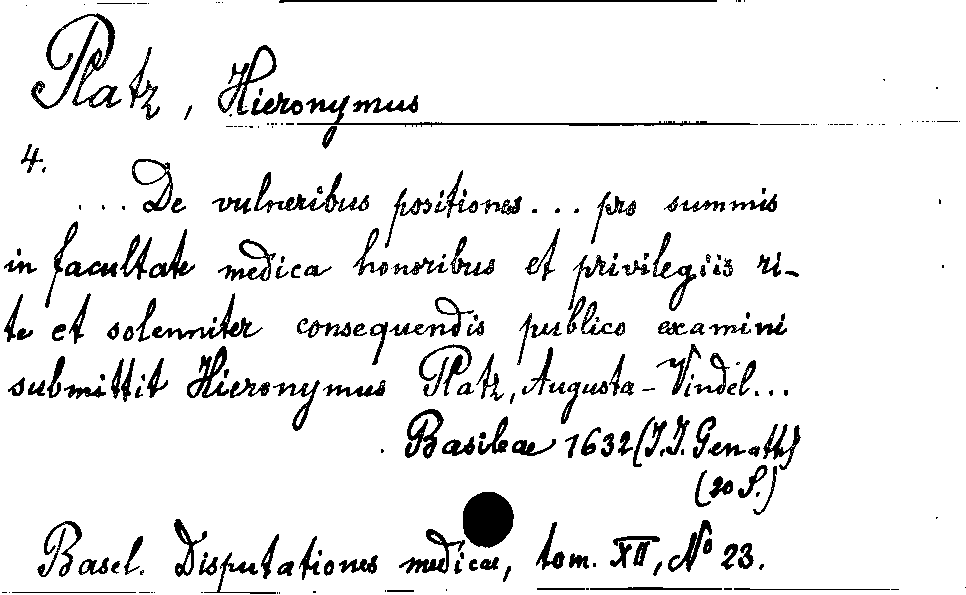 Platz, Hieronymus
4.
... De vulneribus positiones... pro summis
in facultate medica honoribus et privilegiis ri-
te et solenniter consequendis publico examini
submittit Hieronymus Platz, Augusta-Vindel...
Basileae 1632 (J.J. Genath)
(20 S.)
Basel. Disputationes medicae, tom. XII, No 23.